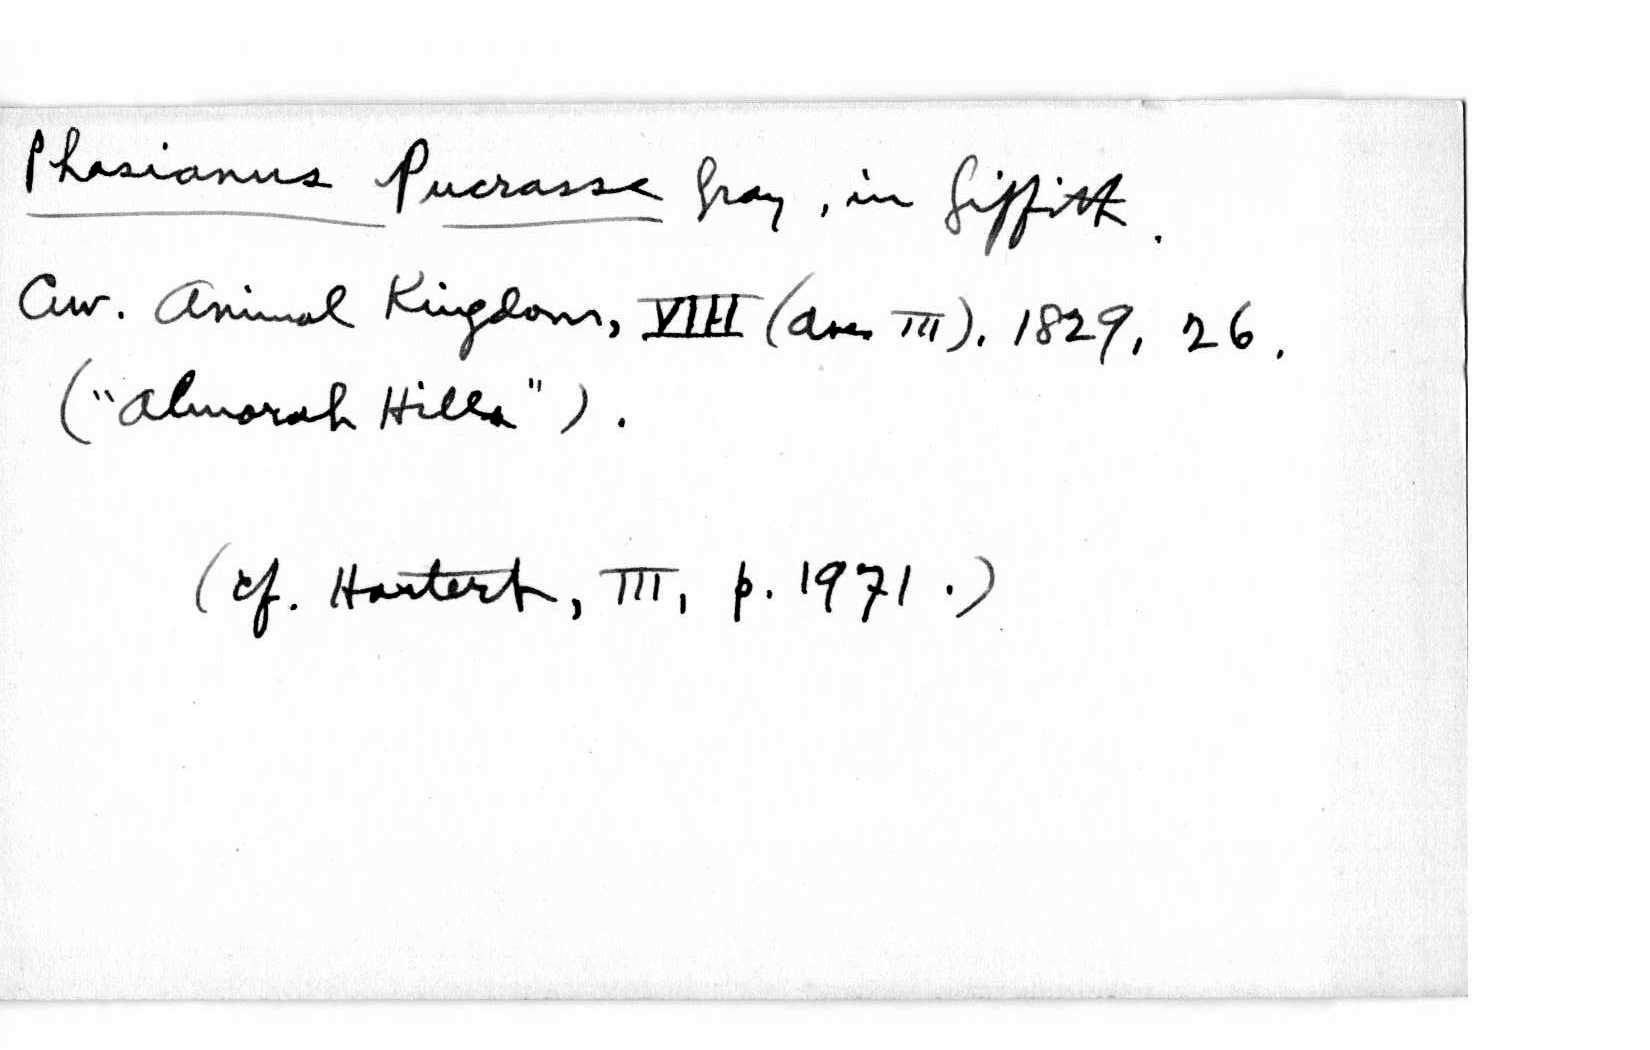 Phasianus Pucrasse Gray, in Giffith.
Cuv. Animal Kingdom, VIII (Aves III). 1829, 26.
("Almorah Hills").
(cf. Hartert, III, p. 1971.)